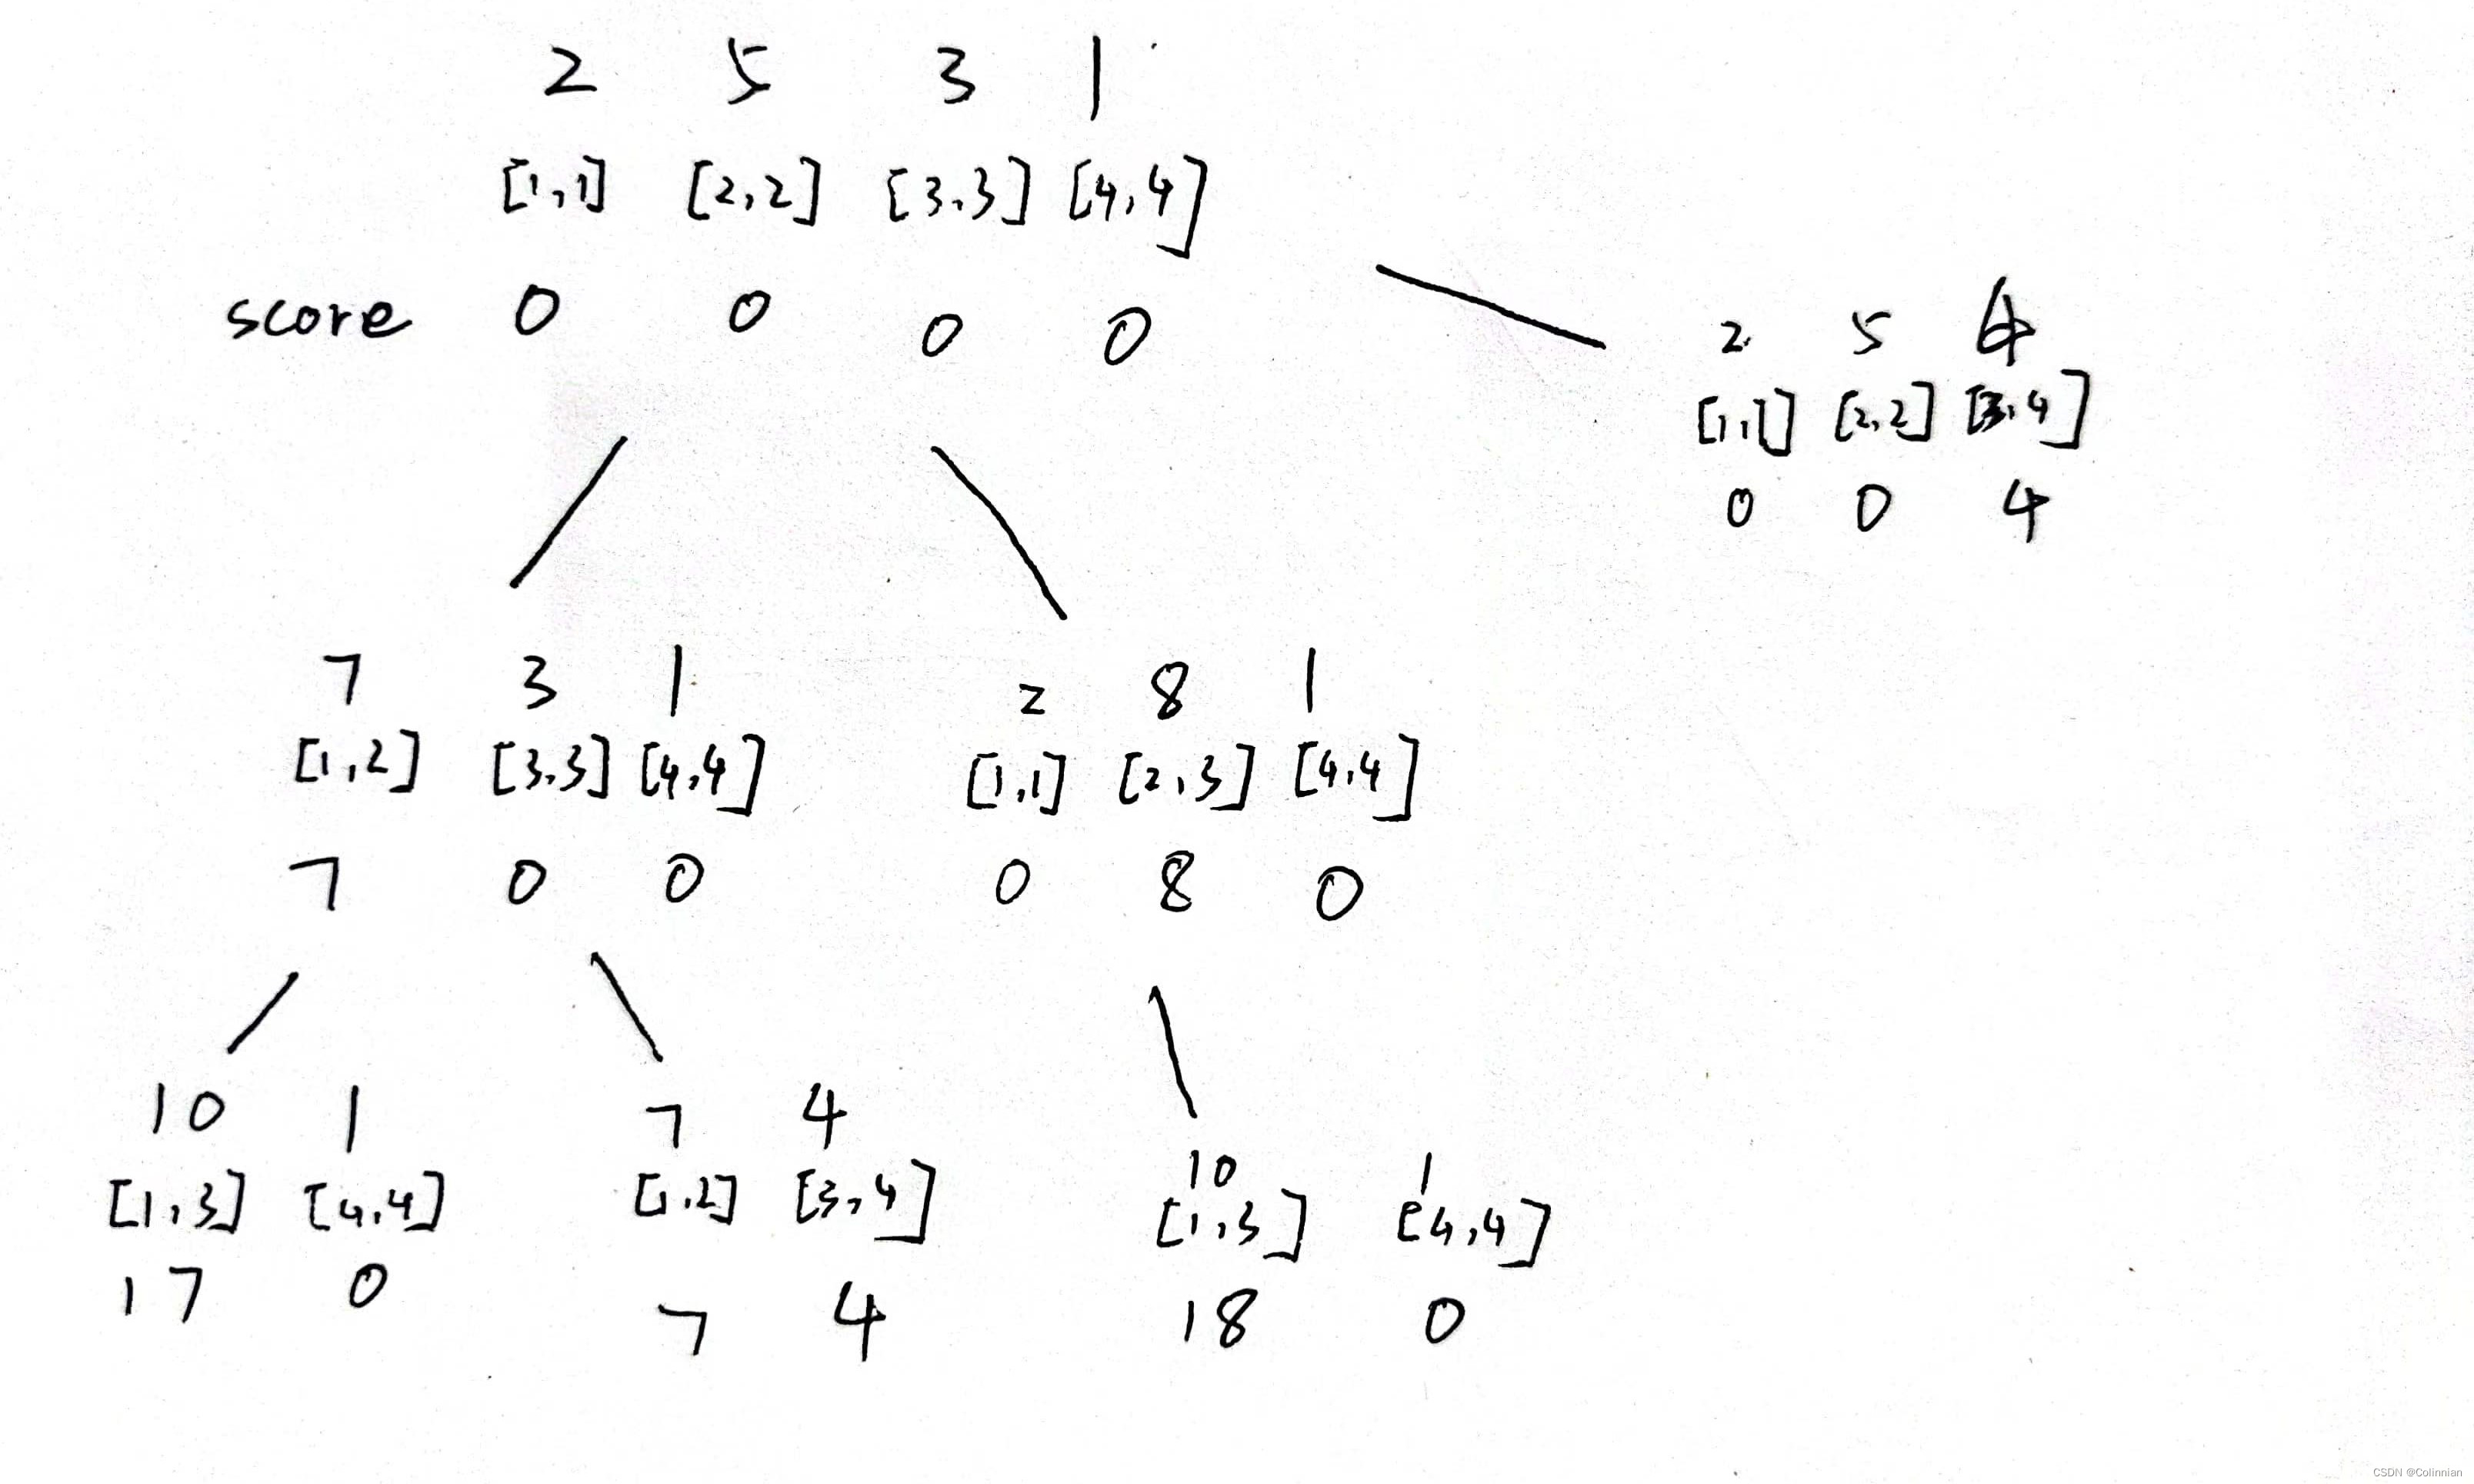 2 5 3 1
[1,1] [2,2] [3,3] [4,4]
score 0 0 0 0
2 5 4
[1,1] [2,2] [3,4]
0 0 4
7 3 1
[1,2] [3,3] [4,4]
7 0 0
2 8 1
[1,1] [2,3] [4,4]
0 8 0
10 1
[1,3] [4,4]
17 0
7 4
[1,2] [3,4]
7 4
10 1
[1,3] [4,4]
18 0
CSDN @Colinnian